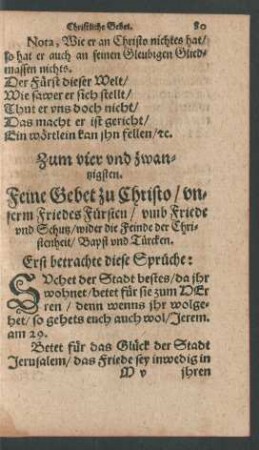 Christliche Gebet. 80
Nota, Wie er an Christo nichtes hat/
so hat er auch an seinen Gleubigen Glied-
massen nichts.
Der Fürst dieser Welt/
Wie sawer er sich stellt/
Thut er vns doch nicht/
Das macht er ist gericht/
Ein wörtlein kan jhn fellen/ꝛc.
Zum vier vnd zwan-
tzigsten.
Feine Gebet zu Christo / vn-
serm Friedes Fürsten / vmb Friede
vnd Schutz/wider die Feinde der Chri-
stenheit/ Bapst vnd Türcken.
Erst betrachte diese Sprüche:
SVchet der Stadt bestes/da jhr
wohnet/betet für sie zum HEr
ren / denn wenns jhr wolge-
het/ so gehets euch auch wol/ Jerem.
am 29.
Betet für das Glück der Stadt
Jerusalem/das Friede sey inwedig in
M v jhren